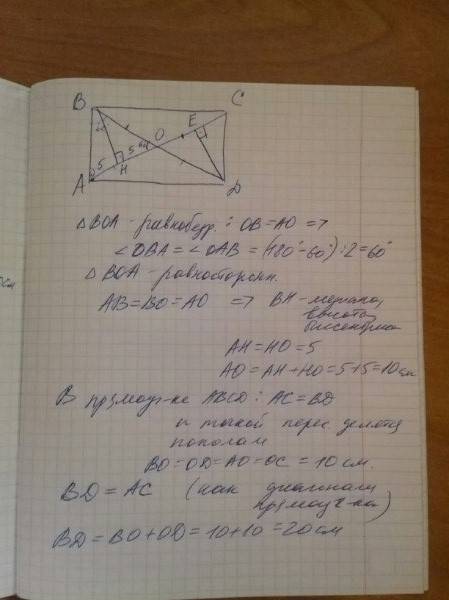 B C
E
O
5 5 см
H
A D
△ BOA - равнобедр. : OB = AO =>
∠OBA = ∠OAB = (180° - 60°) : 2 = 60°
△ BOA - равносторонн.
AB = BO = AO => BH - медиана,
высота,
биссектриса
AH = HO = 5
AO = AH + HO = 5 + 5 = 10 см
В прямоуг-ке ABCD : AC = BD
и точкой перес. делятся
пополам
BO = OD = AO = OC = 10 см.
BD = AC (как диагонали
прямоуг-ка)
BD = BO + OD = 10 + 10 = 20 см